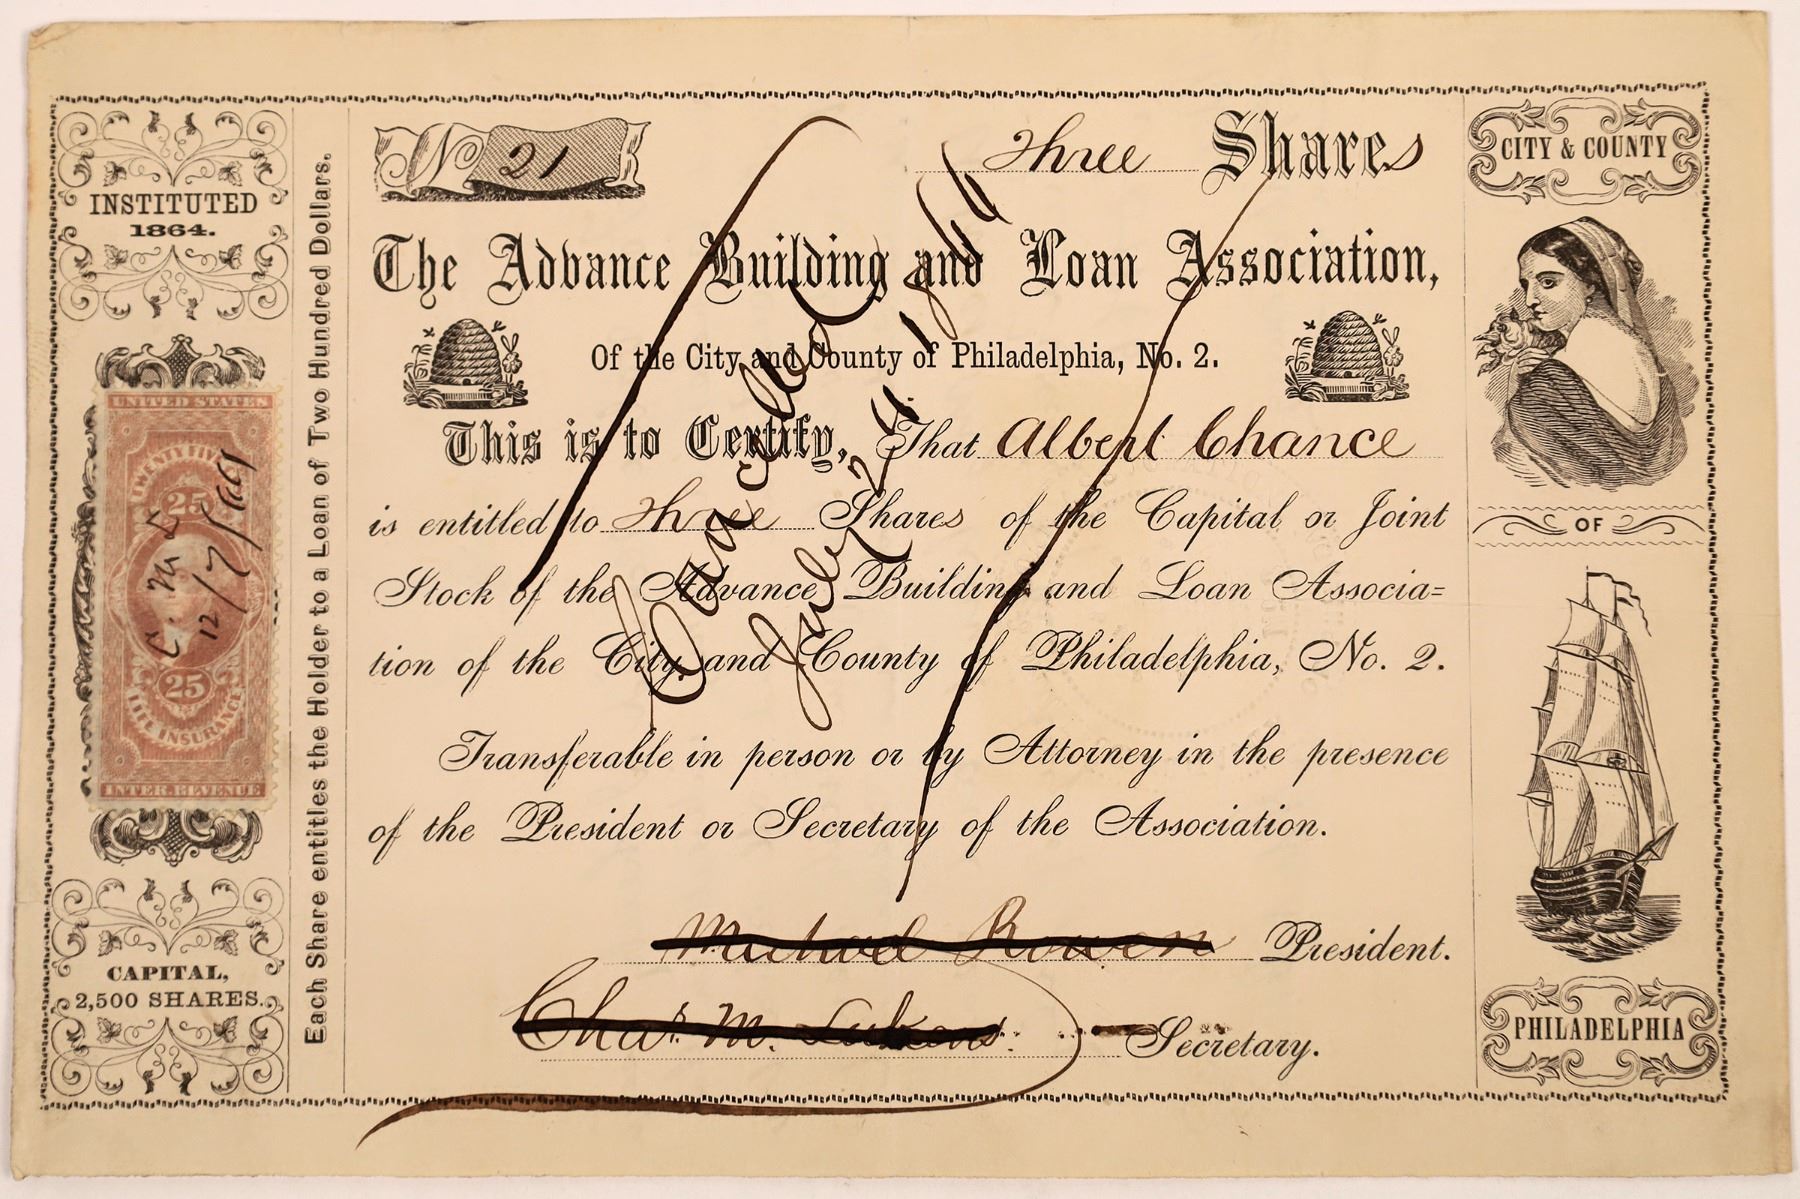 INSTITUTED
1864.
UNITED STATES
TWENTY FIVE
25
C. M. L
12/7/1864
25
LIFE INSURANCE
INTER. REVENUE
CAPITAL,
2,500 SHARES.
Each Share entitles the Holder to a Loan of Two Hundred Dollars.
No 21
Three Shares
The Advance Building and Loan Association,
Of the City and County of Philadelphia, No. 2.
This is to Certify, That Albert Chance
is entitled to Three Shares of the Capital or Joint
Stock of the Advance Building and Loan Associa=
tion of the City and County of Philadelphia, No. 2.
Transferable in person or by Attorney in the presence
of the President or Secretary of the Association.
Michael Rowen President.
Chas. M. Lukens. Secretary.
Cancelled
July 24 1866
CITY & COUNTY
OF
PHILADELPHIA